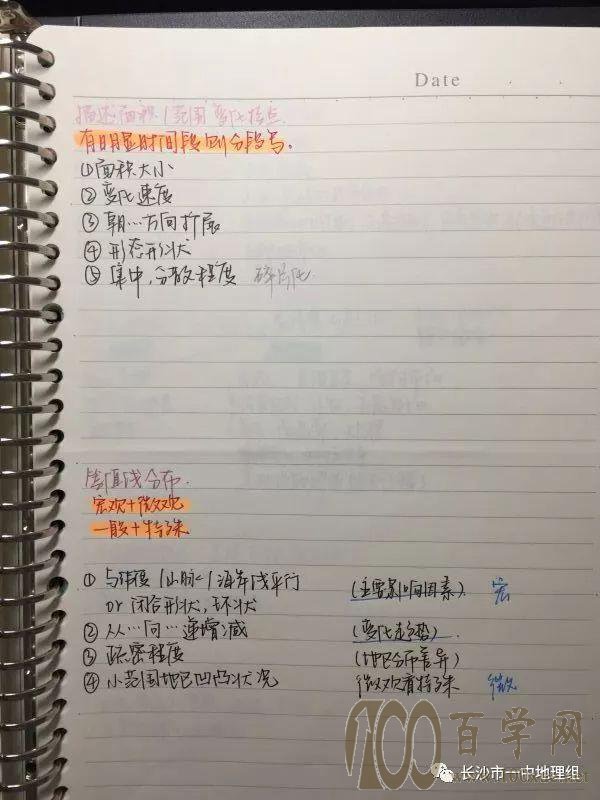 Date
描述面积/范围变化特点.
有明显时间段则分段写.
①面积大小
②变化速度
③朝…方向扩展
④形态形状
⑤集中,分散程度 碎片化
等值线分布.
宏观+微观
一般+特殊
①与纬度/山脉/海岸线平行 (主要影响因素). 宏
or 闭合形状,环状
②从…向…递增/减 (变化趋势).
③疏密程度 (地区分布差异)
④小范围地区凹凸状况 微观有特殊 微
100百学网
长沙市一中地理组